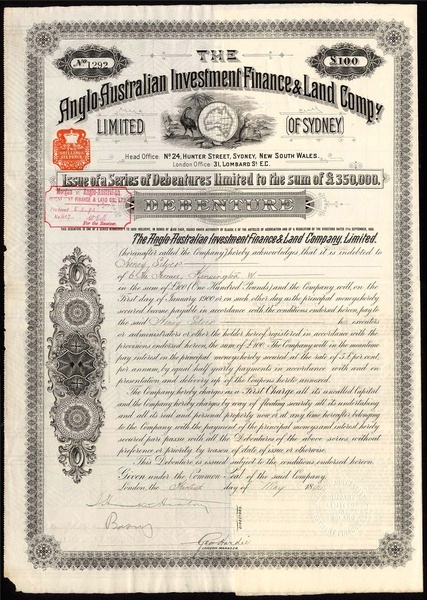 No 1292
£100
THE
Anglo-Australian Investment Finance & Land Compy
LIMITED
OF SYDNEY
Head Office: No 24, HUNTER STREET, SYDNEY, NEW SOUTH WALES.
London Office: 31, LOMBARD St E.C.
Issue of a Series of Debentures Limited to the sum of £350,000.
DEBENTURE
The Anglo-Australian Investment Finance & Land Company, Limited.
(hereafter called the Company) hereby acknowledges that it is indebted to
Kensington W
in the sum of £100 (One Hundred Pounds) and the Company will, on the
First day of January 1900 or on such other day as the principal moneys hereby
secured become payable in accordance with the conditions endorsed hereon, pay to
the said
executors
or administrators or other the holder hereof registered in accordance with the
provisions endorsed hereon, the sum of £100. The Company will in the meantime
pay interest on the principal moneys hereby secured at the rate of 5 per cent
per annum, by equal half yearly payments in accordance with and on
presentation and delivery up of the Coupons hereto annexed.
The Company hereby charges as a First Charge all its uncalled Capital
and the Company hereby charges by way of floating security all its undertaking
and all its real and personal property now or at any time hereafter belonging
to the Company with the payment of the principal moneys and interest hereby
secured pari passu with all the Debentures of the above series without
preference or priority by reason of date of issue or otherwise.
This Debenture is issued subject to the conditions endorsed hereon.
Given under the Common Seal of the said Company.
London, the
day of May 18
Geo Hardie
LONDON MANAGER